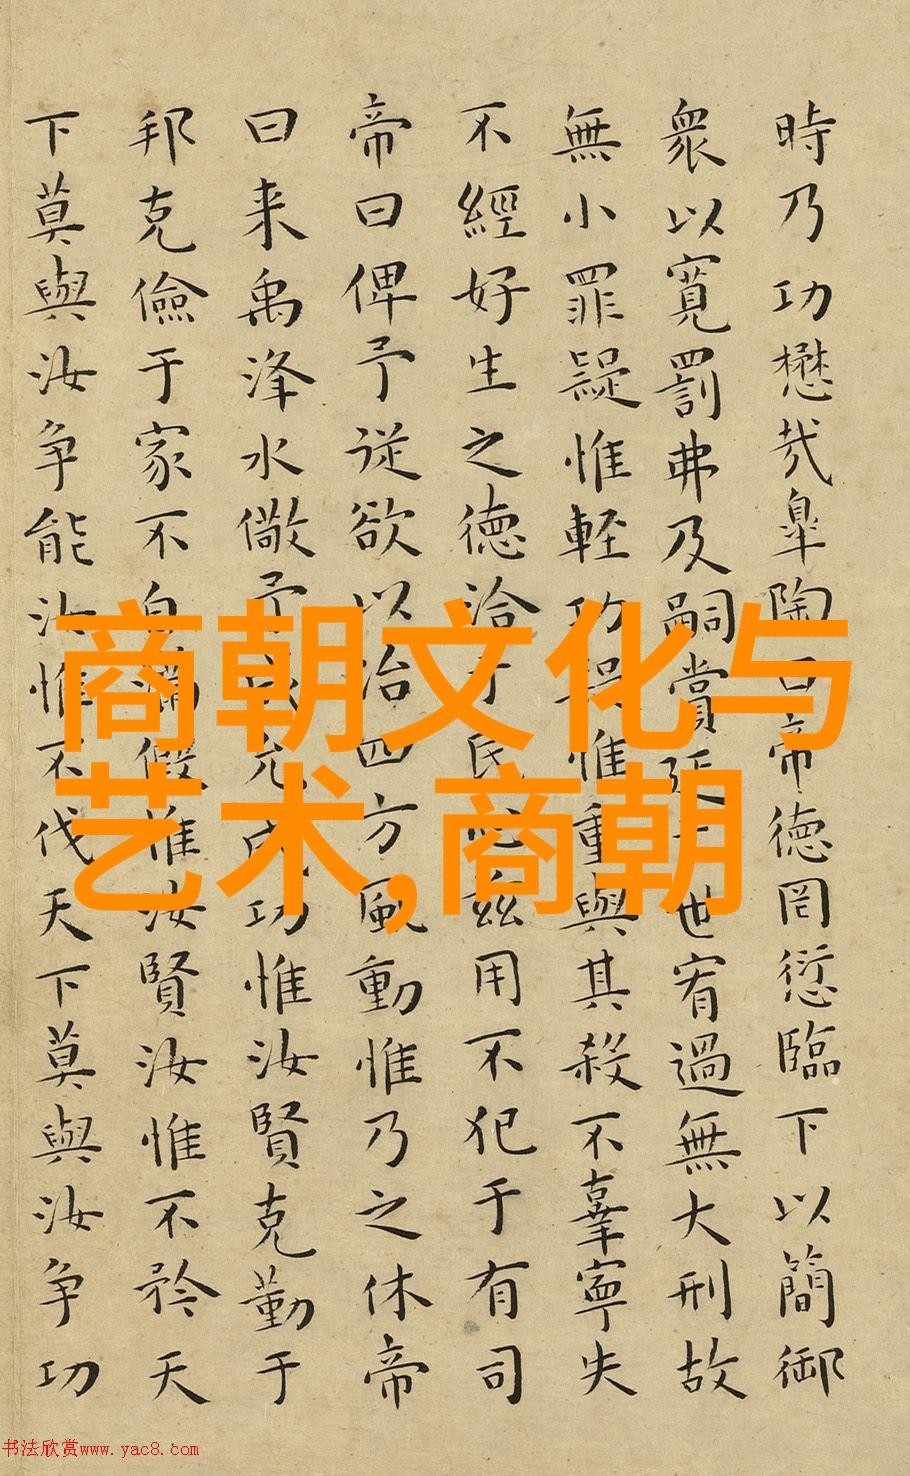 時乃功懋哉皐陶曰帝德罔愆臨下以簡御
衆以寬罰弗及嗣賞延于世宥過無大刑故
無小罪疑惟輕功疑惟重與其殺不辜寧失
不經好生之德洽于民心兹用不犯于有司
帝曰俾予従欲以治四方風動惟乃之休帝
曰来禹洚水儆予成允成功惟汝賢克勤于
邦克儉于家不自滿假惟汝賢汝惟不矜天
下莫與汝争能汝惟不伐天下莫與汝争功
商朝文化与
艺术,商朝
书法欣赏www.yac8.com